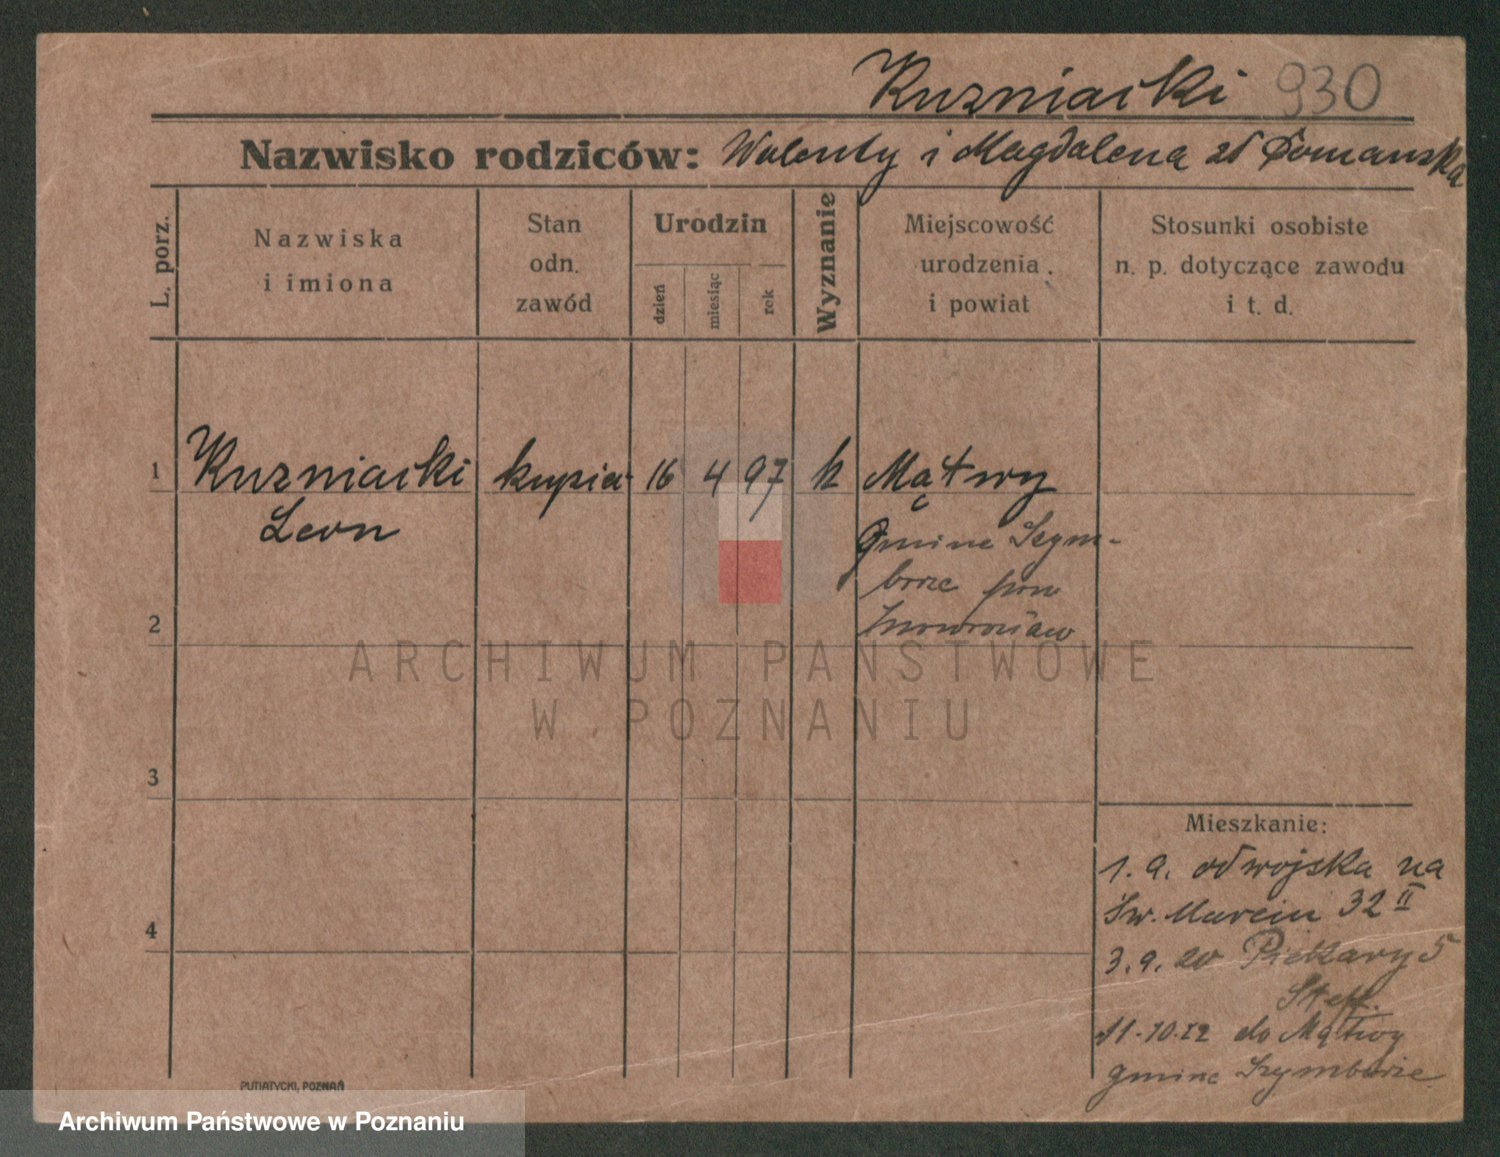 Kuzniacki 930
Nazwisko rodziców: Walenty i Magdalena zd Domanska
L. porz.
Nazwiska
i imiona
Stan
odn.
zawód
Urodzin
dzień
miesiąc
rok
Wyznanie
Miejscowość
urodzenia
i powiat
Stosunki osobiste
n. p. dotyczące zawodu
i t. d.
1 Kuzniacki kupiec 16 4 97 k Mątwy
Leon
Gmina Szym-
borze pow
Inowrocław
2
3
4
ARCHIWUM PAŃSTWOWE
W POZNANIU
Mieszkanie:
1. 9. od wojska na
Św. Marcin 32 II
3. 9. 20 Piekary 5
Steff.
11.10.22 do Mątwy
gmina Szymborze
PUTIATYCKI, POZNAŃ
Archiwum Państwowe w Poznaniu